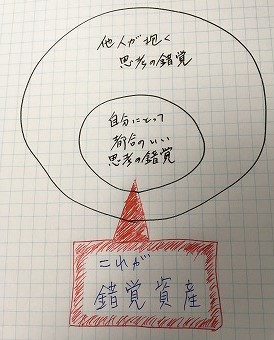 他人が抱く
思考の錯覚
自分にとって
都合のいい
思考の錯覚
これが
錯覚資産